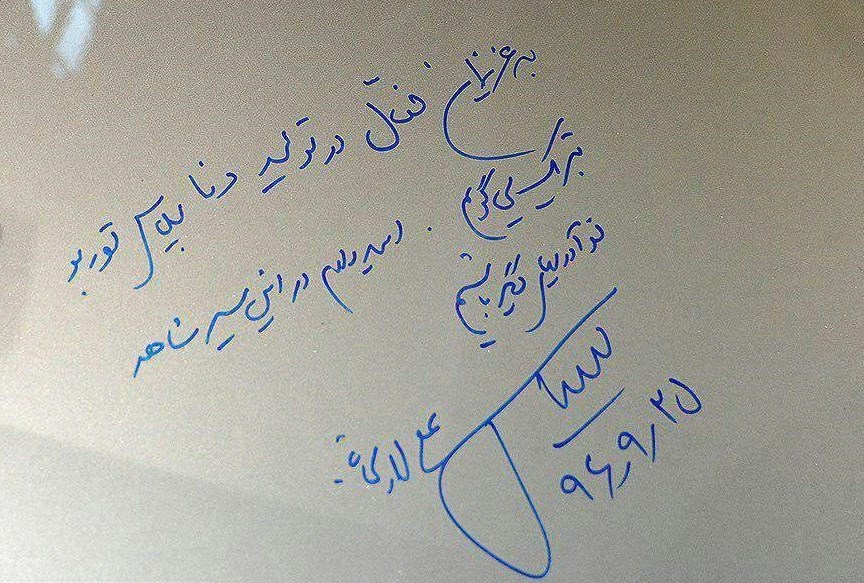 به عزیزان فعال در تولید دنا پلاس توربو
تبریک می‌گویم. امیدوارم در این مسیر شاهد
نوآوری‌های دیگر باشیم
۹۶٫۹٫۲۵